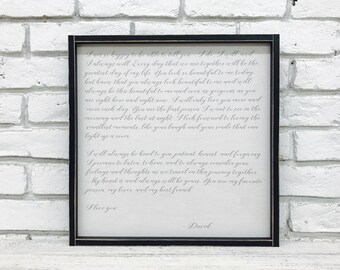 I always will. Every day that we are together will be the
greatest day of my life. You look so beautiful to me today
but know that you always look beautiful to me and will
always be this beautiful to me and even as gorgeous as you
are right here and right now. I will only love you more and
more each day. You are the first person I want to see in the
morning and the last at night. I look forward to loving the
smallest moments, like your laugh and your smile that can
light up a room.
I will always be kind to you patient honest and forgiving
I promise to listen to learn and to always consider your
feelings and thoughts as we travel on this journey together.
My heart is and always will be yours. You are my favorite
person my love and my best friend.
I love you
David